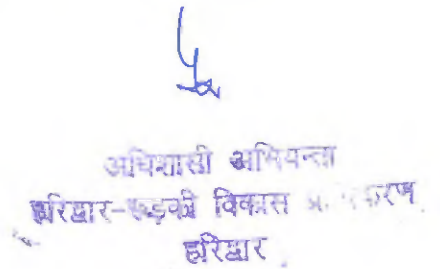 अधिशासी अभियन्ता
हरिद्वार-रूड़की विकास
हरिद्वार